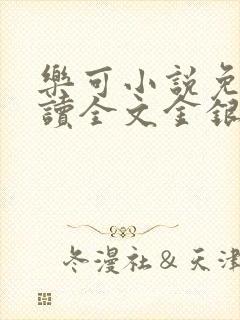 樂可小説免
讀全文金銀
冬漫社&天津